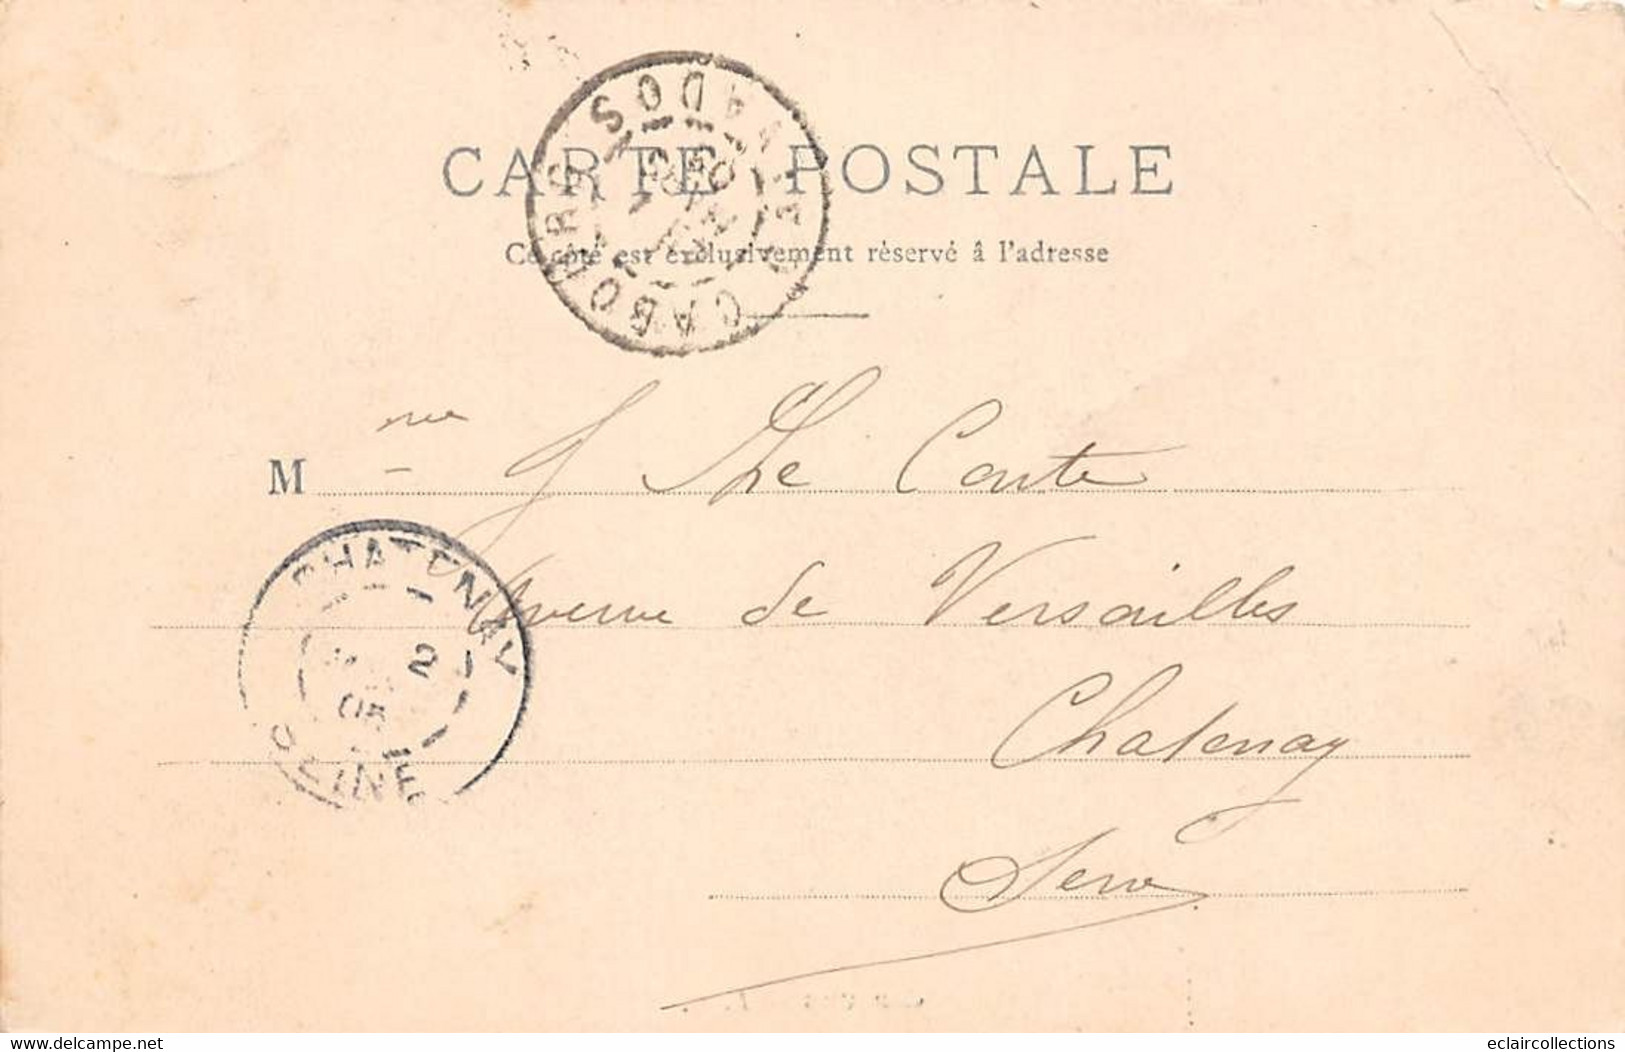 CARTE POSTALE
Ce côté est exclusivement réservé â l'adresse
CABOURG CALVADOS
M me J Le Conte
Avenue de Versailles
Chatenay
Seine
CHATENAY
2
05
SEINE
eclaircollections
www.delcampe.net